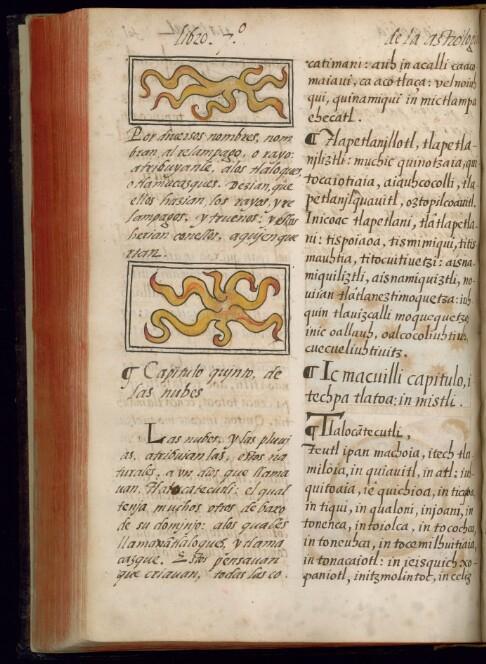 libro. 7.º
Por diversos nombres, nom
bran, al relampago, o rayo:
atribuyanle, a los tlaloques,
o tlamacasques. Dezian, que
ellos hazian los rayos, y re
lampagos, y truenos: y ellos
herian con ellos, a quien que
rian.
¶ Capitulo quinto, de
las nubes
Las nubes, y las pluvi
as, atribuyan las, estos na
turales, a vn dios que llama
uan. Tlalocatecutli: el qual
tenja muchos otros debaxo
de su dominjo: a los quales
llamavã tlaloques, y tlama
casque. Estos pensauan
que criauan, todas las co
de la astrolog
catimani: auh in acalli
maiaui, ca acotlaça: vel noiuh
qui, quinamiqui in mictlampa
ehecatl.
¶ Tlapetlanjllotl, tlapetla-
njliztli: muchic quinotzaia, qui
tocaiotiaia, aiauhcocolli, tla-
petlanjlquauitl, oztopilcoauitl.
Inicoac tlapetlani, tlatlapetla-
ni: tispoiaoa, tismimiqui, titis
mauhtia, titocuitiuetzi: aisna-
miquiliztli, aisnamiquiztli, no-
uiian tlatlaneztimoquetza: iuh
quin tlauizcalli moquequetza,
inic oallauh, oalcocoliuhtiuh,
cuecueliuhtiuitz.
¶ Ic macuilli capitulo, i
techpa tlatoa: in mistli.
¶ Tlalocãtecutli,
teutl ipan machoia, itech tla-
miloia, in quiauitl, in atl: iuh
quitoaia, ie quichioa, in ticqua
in tiqui, in qualoni, in joani, in
tonenca, in toiolca, in tocochca,
in toneuhca, in tocemilhuitiaia,
in tonacaiotl: in ieisquich xo-
paniotl, in itzmolintoc, in celiz